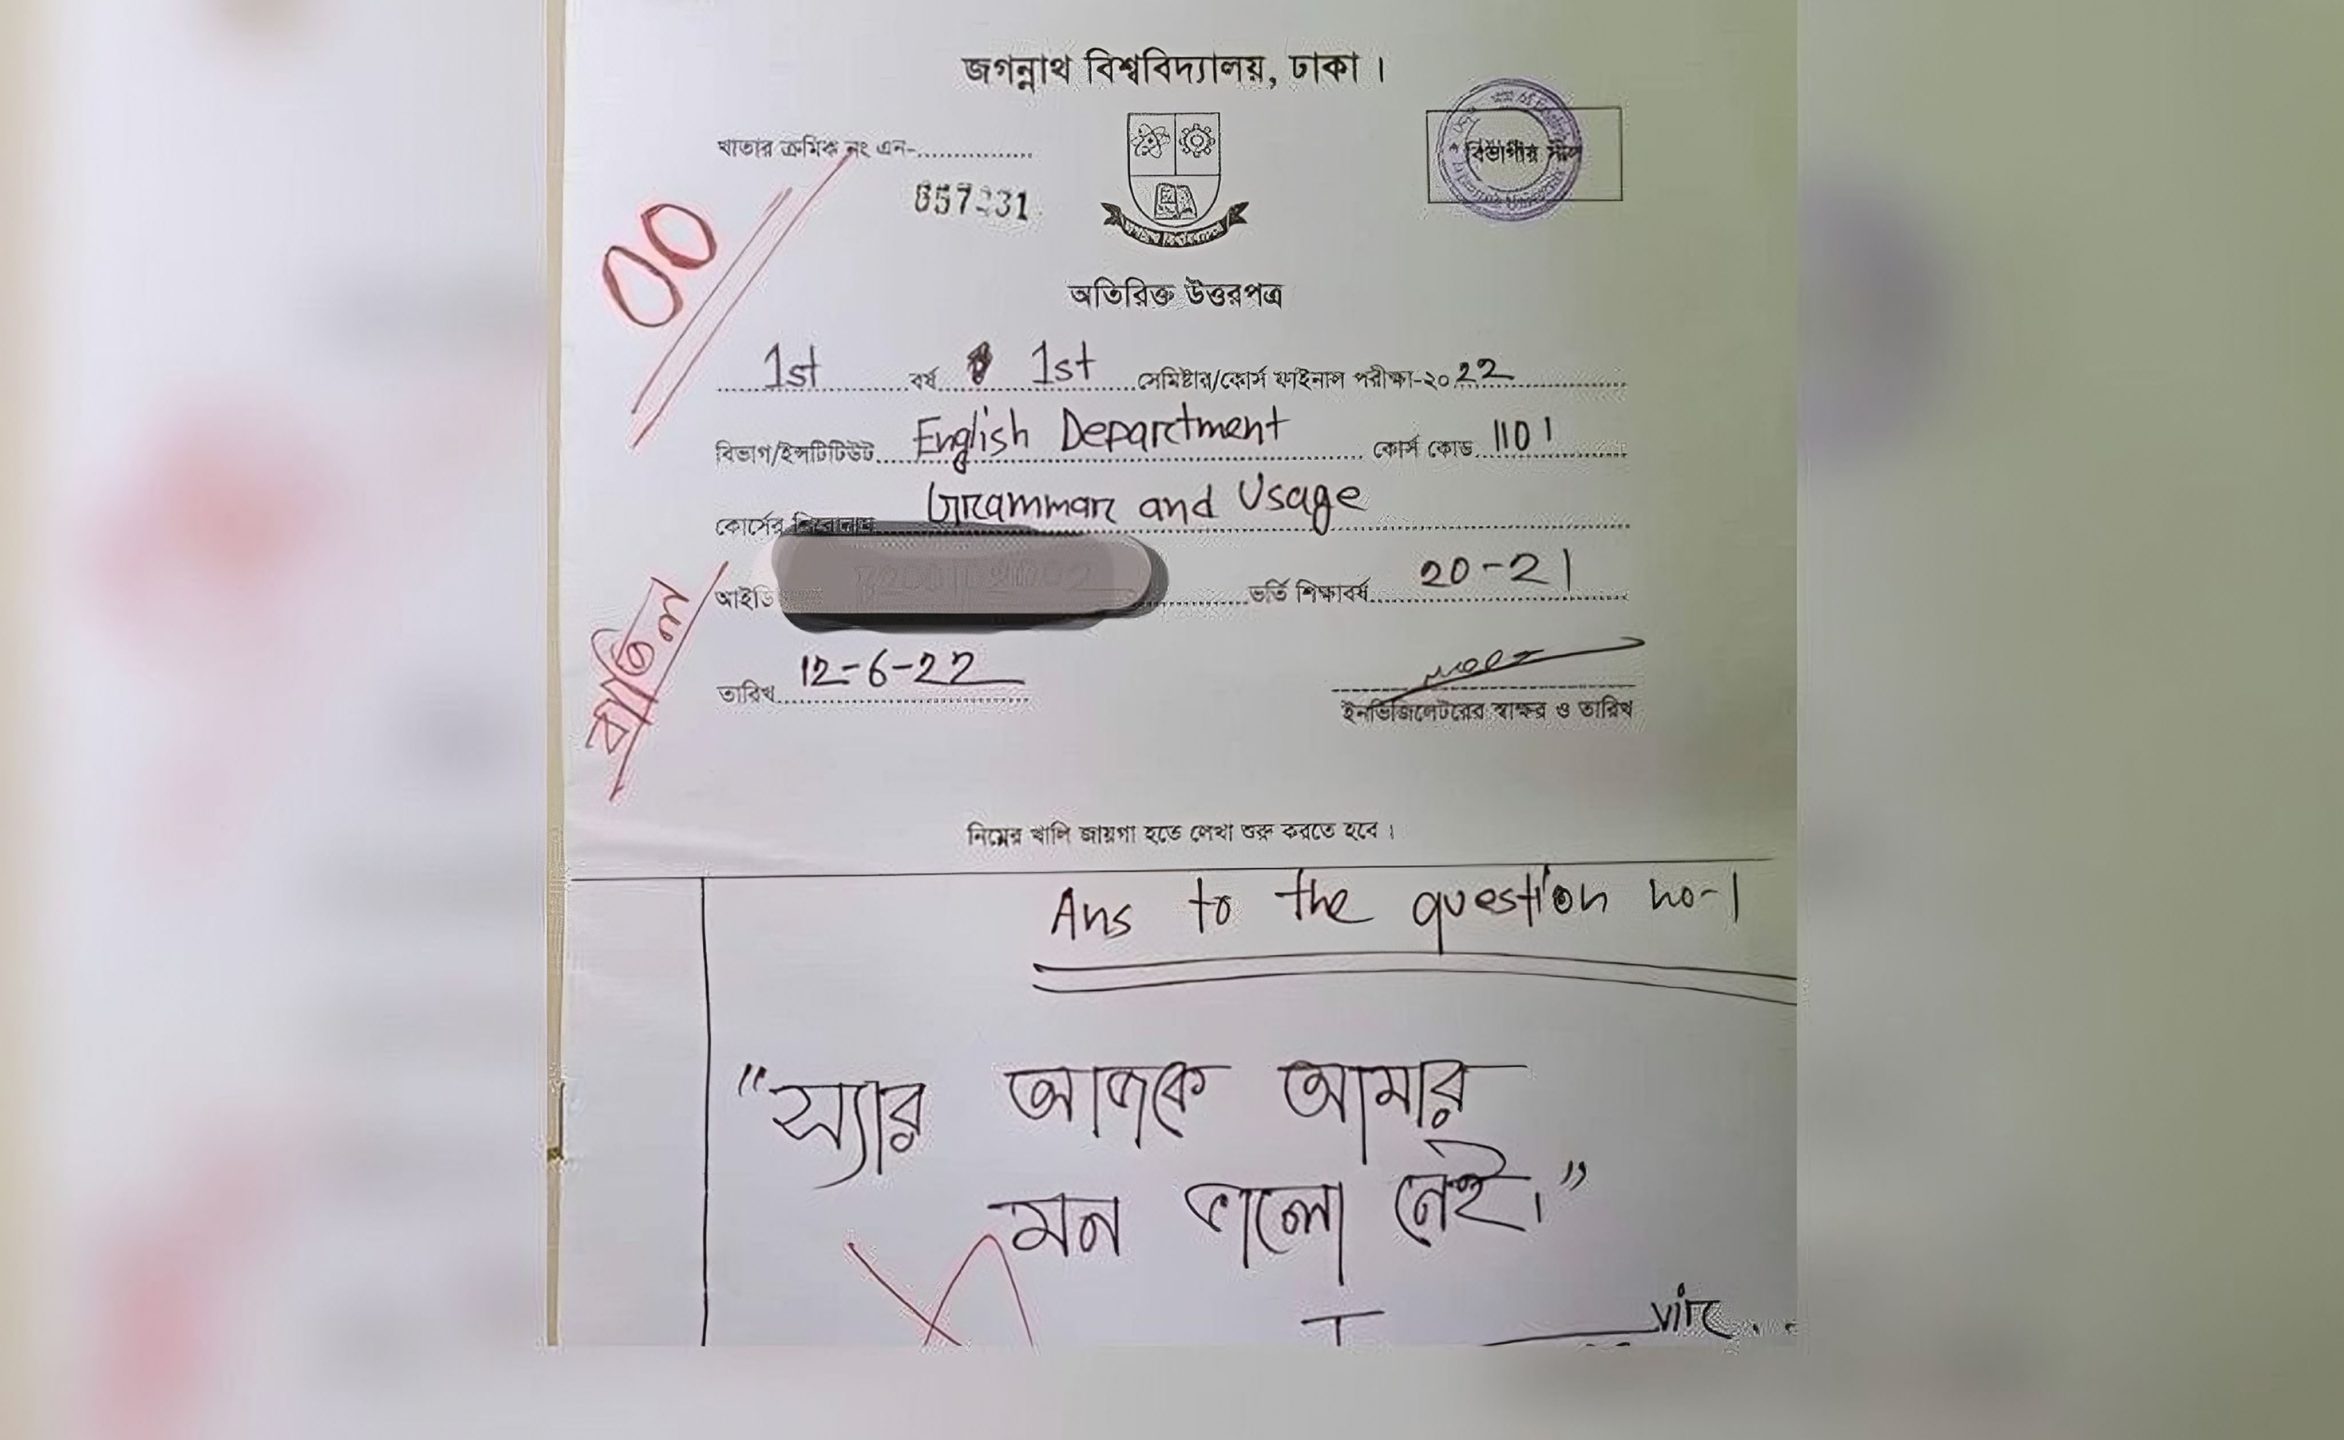 জগন্নাথ বিশ্ববিদ্যালয়, ঢাকা।
খাতার ক্রমিক নং এন-
বিভাগীয় সীল
অতিরিক্ত উত্তরপত্র
1st বর্ষ 1st সেমিষ্টার/কোর্স ফাইনাল পরীক্ষা-২০22
বিভাগ/ইন্সটিটিউট English Department কোর্স কোড 1101
কোর্সের শিরোনাম Grammar and Usage
আইডি ভর্তি শিক্ষাবর্ষ 20-21
তারিখ 12-6-22
ইনভিজিলেটরের স্বাক্ষর ও তারিখ
00
বাতিল
নিম্নের খালি জায়গা হতে লেখা শুরু করতে হবে।
Ans to the question no-1
"স্যার আজকে আমার
মন ভালো নেই।"